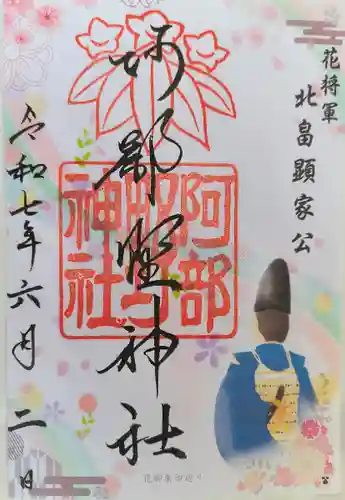 花将軍
北畠顕家公
阿部野神社
阿部野神社
令和七年六月二日
花御朱印巡り